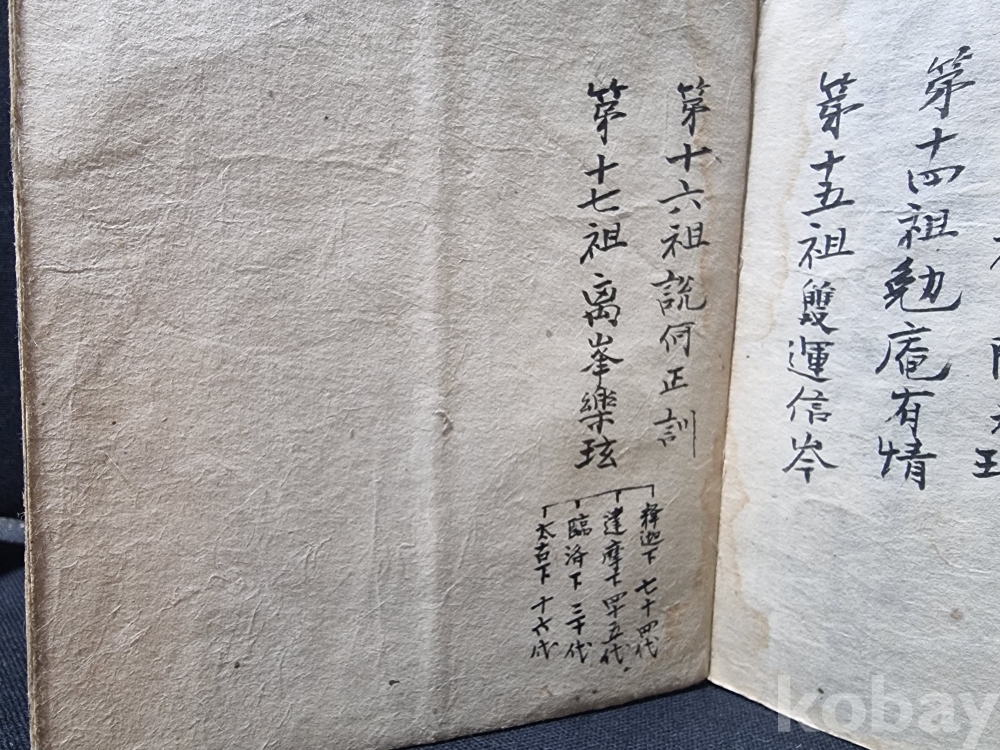 第十四祖勉庵有情
第十五祖雙運信岑
第十六祖説何正訓
第十七祖离峯樂玹
釋迦下七十四代
達摩下四十五代
臨济下三十代
太古下十六代
kobay